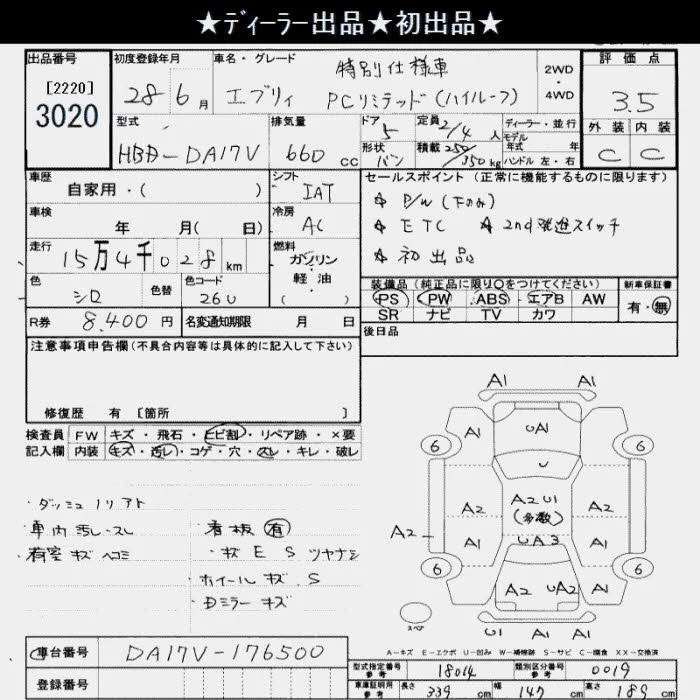 ★ディーラー出品★初出品★
出品番号
[2220]
3020
初度登録年月
28 6 月
車名・グレード
エブリィ PCリミテッド(ハイルーフ)
特別仕様車
2WD
・
4WD
評価点
3.5
外装 内装
C C
型式
HBD-DA17V
排気量
660 cc
ドア
5
定員 2/4 人
形状
バン
積載 250/350 kg
ディーラー・並行
モデル
年式 年
ハンドル 左・右
車歴
自家用・( )
シフト
IAT
車検
年 月( 日)
冷房
AC
走行
15万4千028 km
燃料
ガソリン
・
軽油
( )
色
シロ
色替
色コード
26U
R券 8,400 円
名変通知期限 月 日
セールスポイント(正常に機能するものに限ります)
☆ P/W (下のみ)
☆ ETC ☆ 2nd発進スイッチ
☆ 初出品
装備品(純正品に限り○をつけてください)
PS PW ABS エアB AW
SR ナビ TV カワ
新車保証書
有・無
後日品
注意事項申告欄(不具合内容等は具体的に記入して下さい)
修復歴 有 [箇所 ]
検査員 FW キズ・飛石・ヒビ割・リペア跡・×要
記入欄 内装 キズ・汚レ・コゲ・穴・スレ・キレ・破レ
・ダッシュノリアト
・車内汚レ・スレ
・荷室キズヘコミ
・看板 有
・キズ E S ツヤナシ
・ホイールキズ、S
・Dミラーキズ
A1 A1
6 A1 UA1 A1 6
U
A2 A2U1 A2
(多数)
A2 A1 UA3 A1
6 A2 UA2 A1 6
スペア
U1 A1 A1
A-キズ E-エクボ U-凹み W-補修跡 S-サビ C-腐食 XX-交換済
車台番号 DA17V-176500
登録番号
型式指定番号
参考
18014
類別区分番号
参考
0019
車庫証明用
参考
長さ 339 cm 幅 147 cm 高さ 189 cm